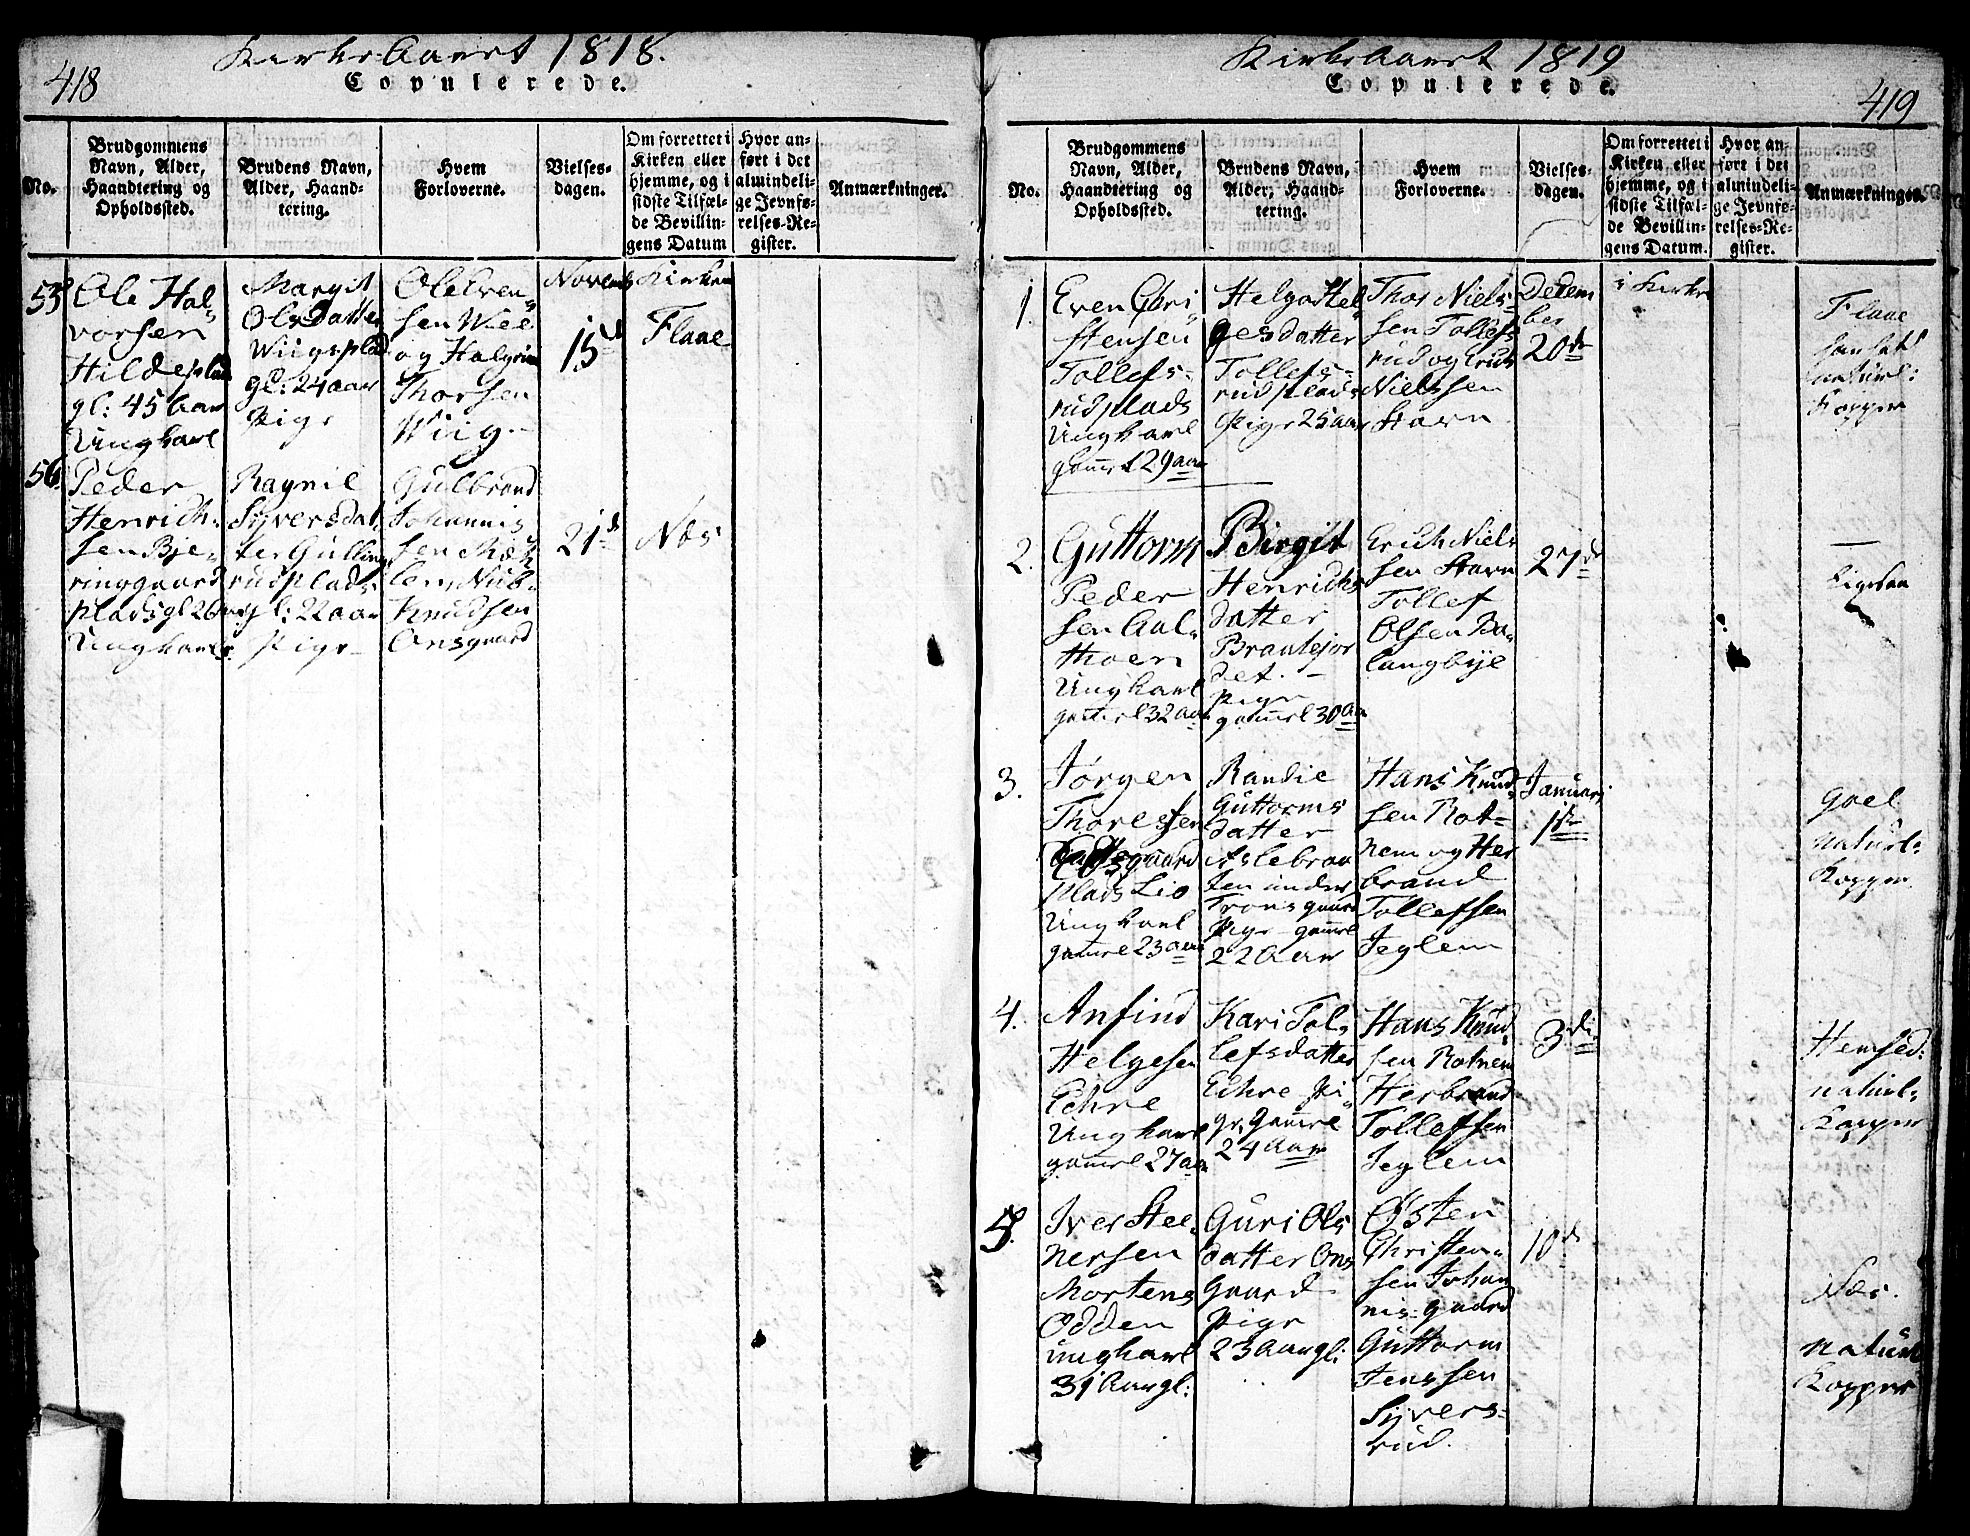 418
Kirke Aaret 1818.
Copulerede.
No.
Brudgommens
Navn, Alder,
Haandtering og
Opholdssted.
Brudens Navn,
Alder, Haand-
tering.
Hvem
Forloverne.
Vielses-
dagen.
Om forrettet i
Kirken eller
hjemme, og i
sidste Tilfæl-
de Bevillin-
gens Datum
Hvor an-
ført i det
almindeli-
ge Jevnfø-
relses-Re-
gister.
Anmærkninger.
55
Ole Hal-
vorsen
Hildeplad
gl: 45 Aar
Ungkarl
Margit
Olsdatter
Wiigsplad
gl: 24 aar
Pige
Ole Even-
sen Wiee
og Halgrim
Thorsen
Wiig
Novemb
15d
Kirken
Flaae
56
Peder
Henrich-
sen Bje-
ringgaard
plads gl 26
Ungkarl
Ragnil
Syversdat-
ter Gullin
rudplads
gl: 22 aar
Pige
Gulbrand
Johannis
sen
Knudsen
Onsgaard
21d
Næs
Kirke Aaret 1819
419
Copulerede.
No.
Brudgommens
Navn, Alder,
Haandtering og
Opholdssted.
Brudens Navn,
Alder, Haand-
tering.
Hvem
Forloverne.
Vielses-
dagen.
Om forrettet i
Kirken eller
hjemme, og i
sidste Tilfæl-
de Bevillin-
gens Datum.
Hvor an-
ført i det
almindeli-
ge Jevnfø-
relses-Re-
gister.
Anmærkninger.
1.
Even Chri-
stensen
Tollefs-
rudplads
Ungkarl
gamel 29 aar
Helga Hel-
gesdatter
Tollefs-
rudplads
Pige 25 aar
Thor Niels-
sen Tollefs
rud og Erich
Nielssen
Stavn
Decem
ber
20de
i Kirke
Flaae
naturl:
Kopper
2.
Guttorm
Peder
sen Aal-
thoen
Ungkarl
gamel 32 aar
Birgit
Henrichs
datter
Brautejor
det.
Pige
gamel 30 Aar
Erich Niels
sen Stavn
Tollef
Olsen Ba-
langbye
27de
Ligesaa
3.
Jørgen
Thoresen
plads Lio
Ungkarl
gamel 23 aar
Randie
Guttorms
datter
Aslebraa
ten under
Tronsgaard
Pige gamel
22 Aar
Hans Knud-
sen Rot-
nem og Her
brand
Tollefsen
Jeglem
Januari
1ste
Goel
naturl-
Kopper
4.
Anfind
Helgesen
Echre
Ungkarl
gamel 27 aar
Kari Tol-
lefsdatter
Echre Pi-
ge gamel
24 Aar
Hans Knud-
sen Rotnem
Herbrand
Tollefsen
Jeglem
3die
Hemsed:
naturl-
Kopper
5.
Iver Stee-
nersen
Mortens
Odden
ungkarl
31 Aar gl:
Guri Ols
datter Ons
gaard
Pige
23 Aar gl:
Østen
Christen-
sen Johan
nis-gaard
Guttorm
Jenssen
Syvers-
rud.
10d
Næs.
naturl
Kopper